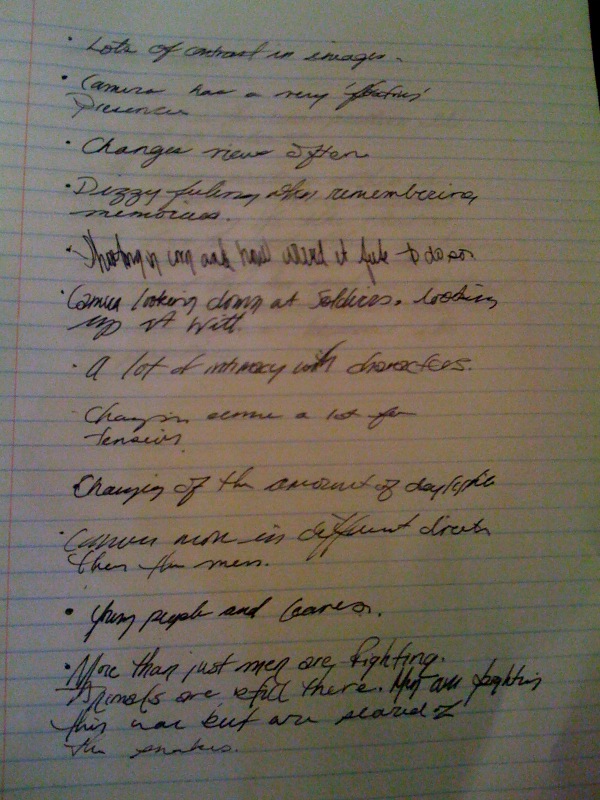 • Lots of contrast in images.
• Camera has a very
Presence
• Changes view often
• Dizzy feeling when remembering
memories.
• Shooting and how weird it feels to do so.
• Camera looking down at Soldiers. looking
up at Witt.
• A lot of intimacy with characters.
Changing scene a lot for
Tension.
Changing of the amount of daylight
• Camera move in different
then the men.
• young people and
• More than just men are fighting.
Animals are still there. Men are fighting
this war but are scared of
the snakes.